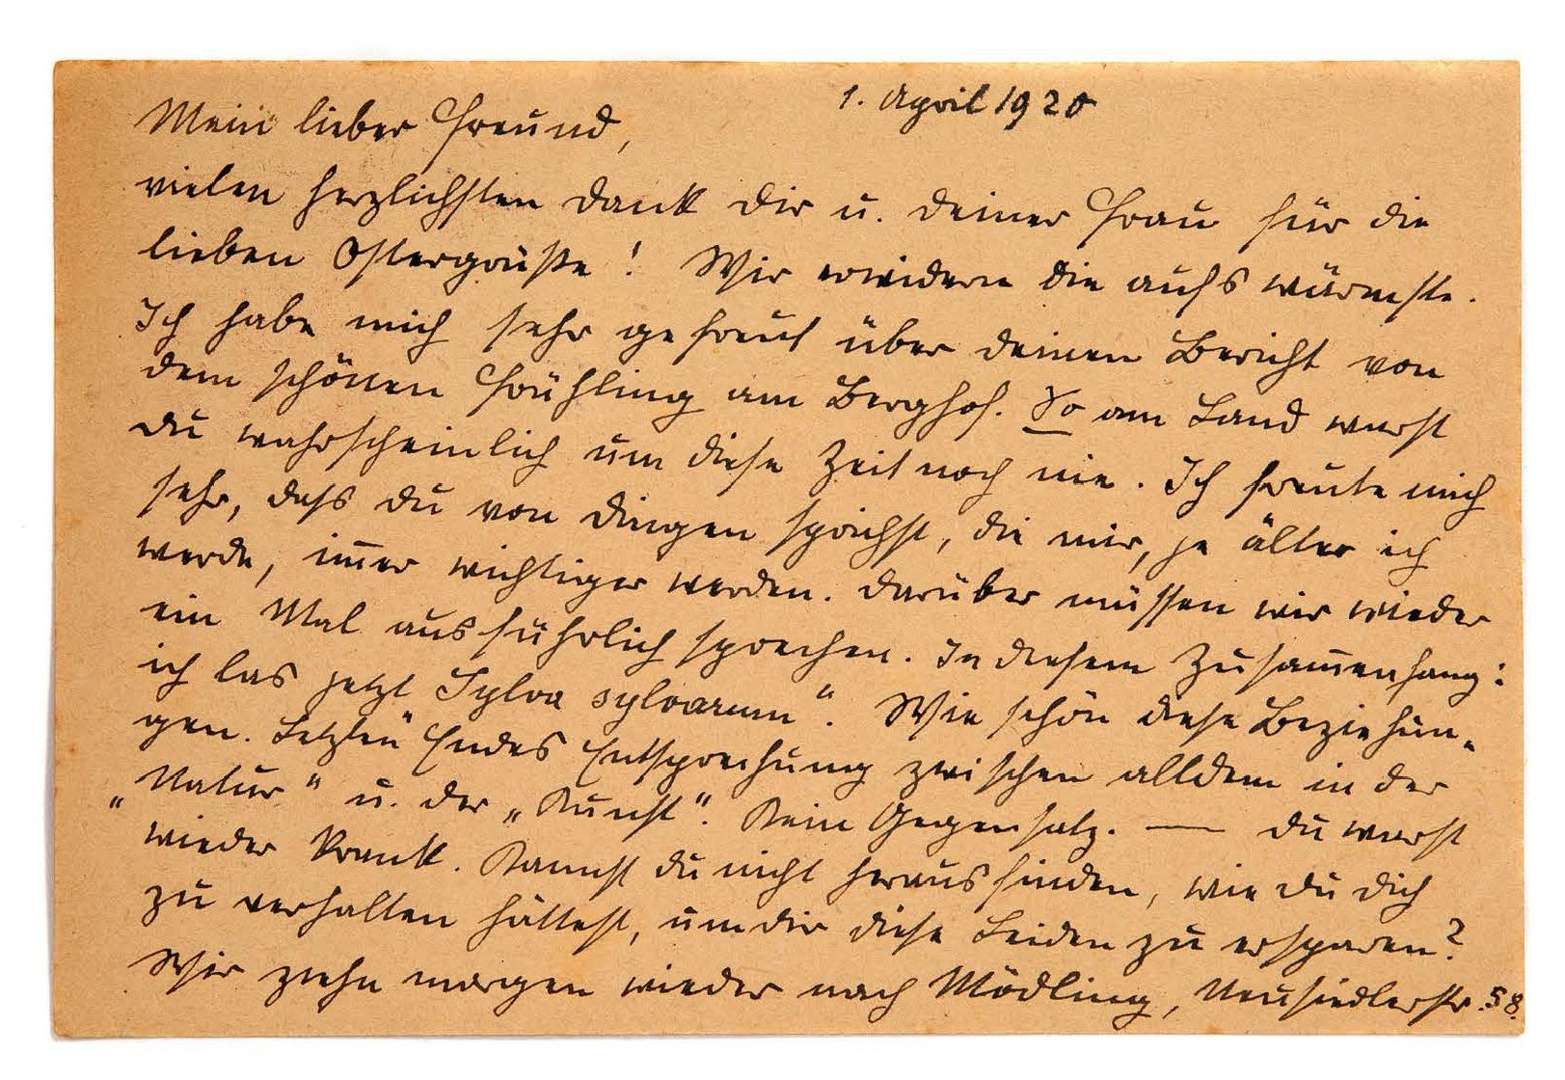 1. April 1920
Mein lieber Freund,
vielen herzlichsten Dank Dir u. Deiner Frau für die
lieben Ostergrüße! Wir erwidern die aufs wärmste.
Ich habe mich sehr gefreut über Deinen Bericht von
dem schönen Frühling am Berghof. So am Land warst
Du wahrscheinlich um diese Zeit noch nie. Ich freute mich
sehr, dass Du von Dingen sprichst, die mir, je älter ich
werde, im̅er wichtiger werden. Darüber müssen wir wieder
ein Mal ausführlich sprechen. In diesem Zusam̅enhang:
ich las jetzt Sylva sylvarum“. Wie schön diese Beziehun-
gen. Letzten Endes Entsprechung zwischen alldem in der
„Natur“ u. der „Kunst“. Kein Gegensatz. — Du warst
wieder krank. Kannst Du nicht herausfinden, wie Du Dich
zu verhalten hättest, um Dir diese Leiden zu ersparen?
Wir ziehn morgen wieder nach Mödling, Neusiedlerstr. 58.